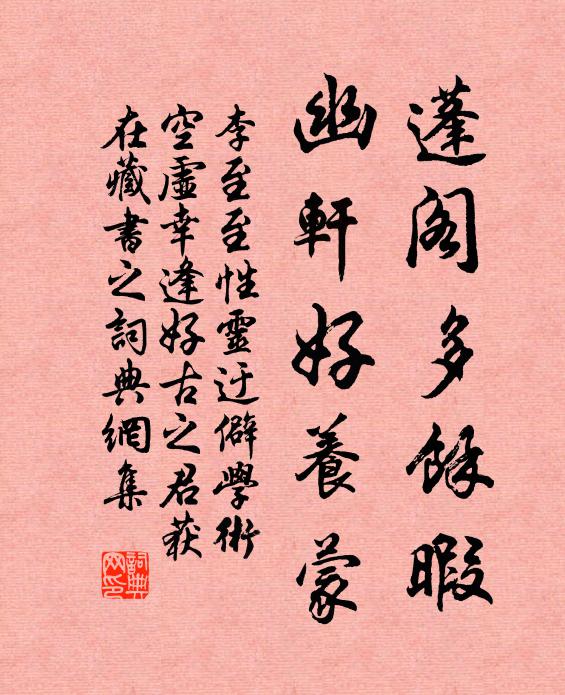 蓬阁多餘暇
幽軒好養蒙
李至至性靈迂僻學術
空虛幸逢好古之君获
在藏書之詞典網集
詞典
网印